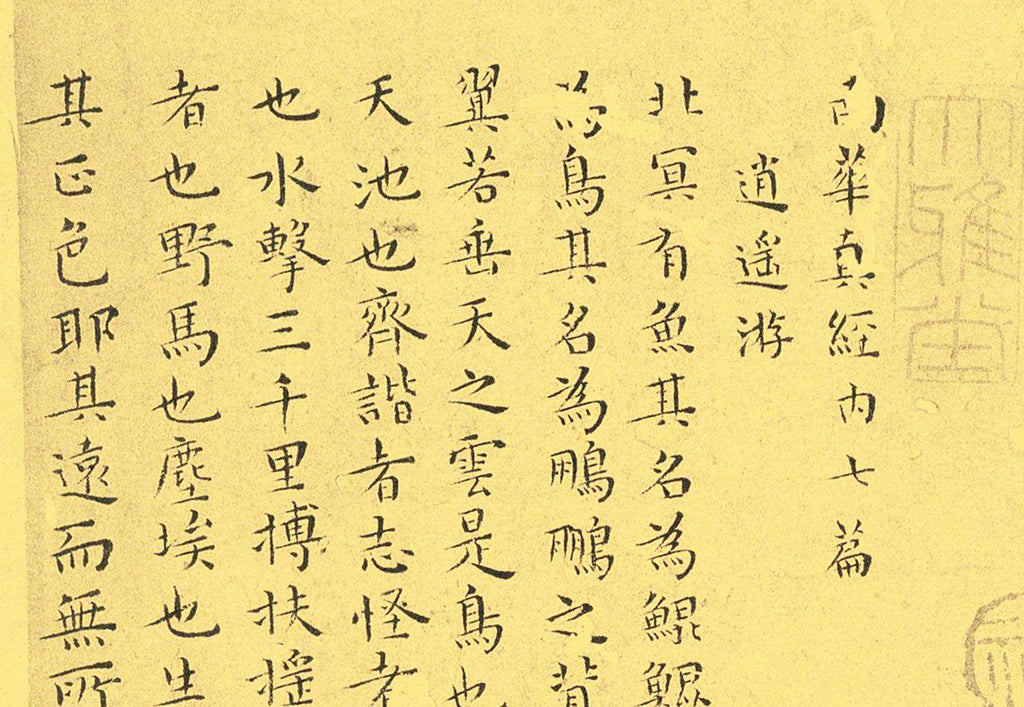 南華真經内七篇
逍遥游
北冥有魚其名為鯤鯤
為鳥其名為鵬鵬之背
翼若垂天之雲是鳥也
天池也齊諧者志怪者
也水擊三千里搏扶摇
者也野馬也塵埃也生
其正色耶其遠而無所